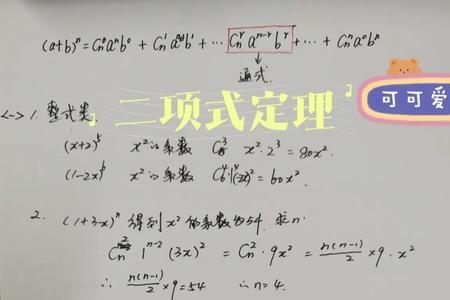 (a+b)ⁿ = Cₙ⁰aⁿb⁰ + Cₙ¹aⁿ⁻¹b¹ + … Cₙʳaⁿ⁻ʳbʳ + … + Cₙⁿa⁰bⁿ
通式
「二项式定理」
可可爱
<一> 1. 整式类
(x+2)⁵ x²的系数 C₅³ x²·2³ = 80x².
(1-2x)⁶ x²的系数 C₆⁴1⁴(-2x)² = 60x².
2. (1+3x)ⁿ 得到 x² 的系数为54. 求n.
Cₙ² 1ⁿ⁻² (3x)² = Cₙ²·9x² = n(n-1)/2 ×9·x²
∴ n(n-1)/2 ×9=54 n=4.